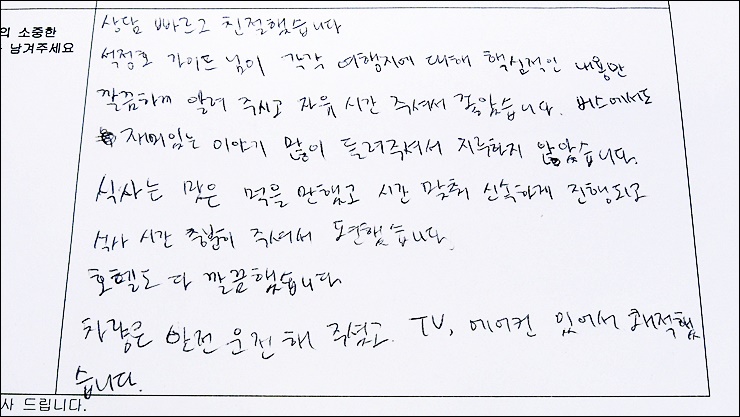 의 소중한
남겨주세요
상담 빠르고 친절했습니다
석정호 가이드 님이 각각 여행지에 대해 핵심적인 내용만
깔끔하게 알려 주시고 자유 시간 주셔서 좋았습니다. 버스에서도
재미있는 이야기 많이 들려주셔서 지루하지 않았습니다.
식사는 맛은 먹을 만했고 시간 맞춰 신속하게 진행되고
식사 시간 충분히 주셔서 편했습니다.
호텔도 다 깔끔했습니다
차량은 안전 운전 해 주셨고. TV, 에어컨 있어서 쾌적했
습니다.
사 드립니다.